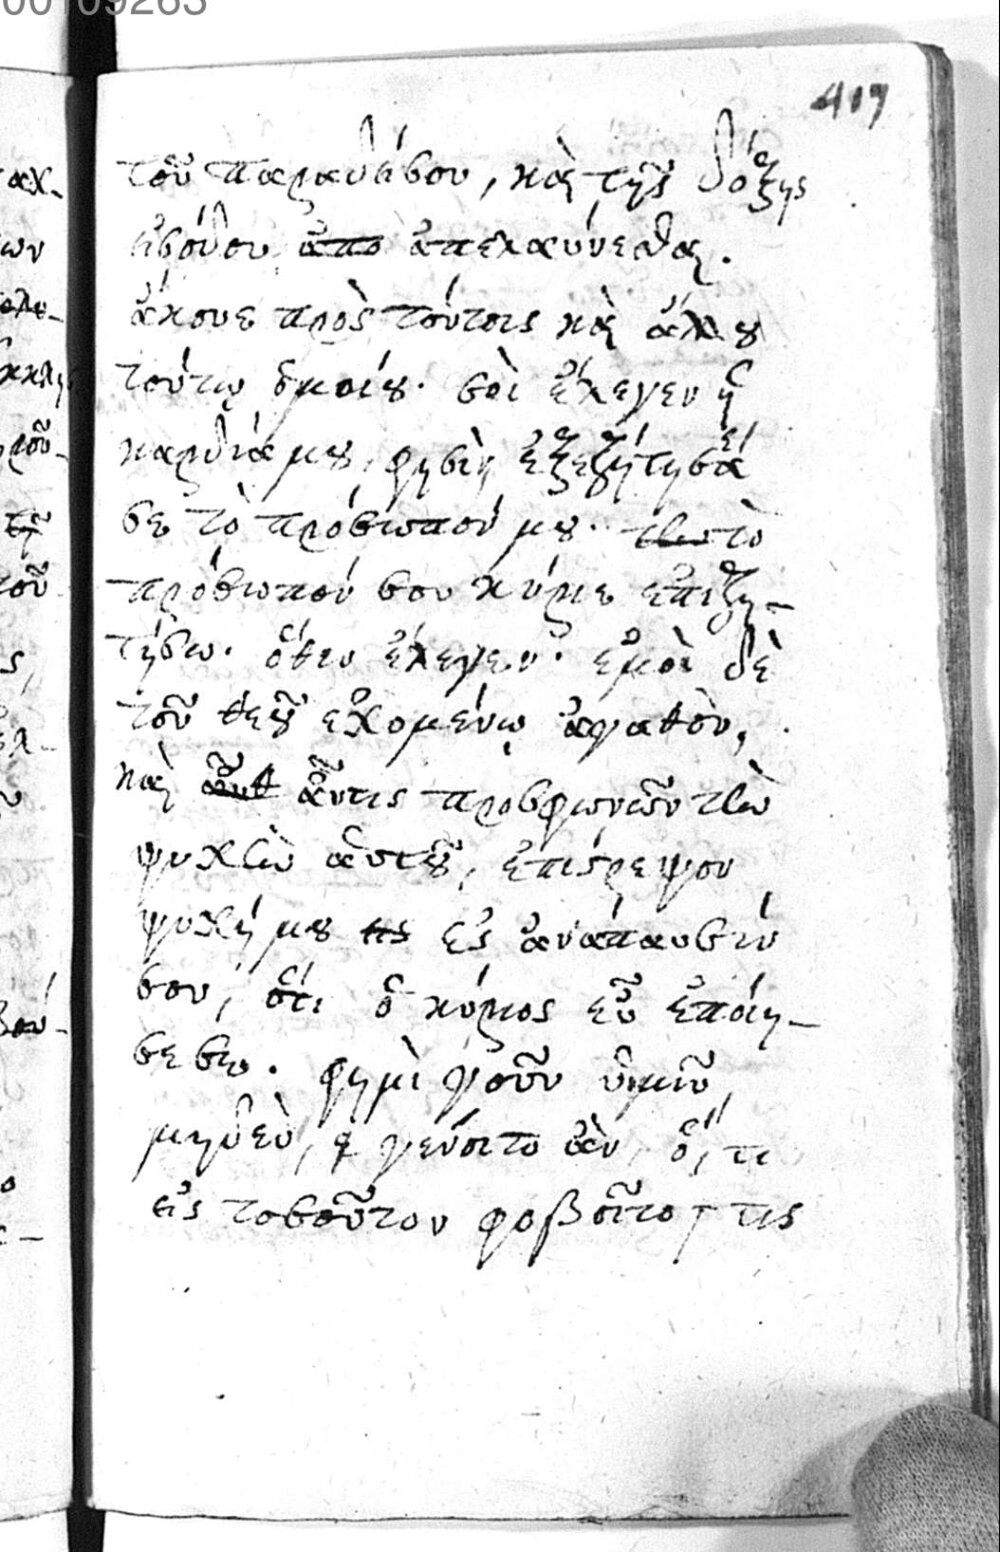 00109263
417
τοῦ παραδείσου, καὶ τῆς δόξης
ἀπο ἀπελαύνεσθαι.
ἄκουε πρὸς τούτοις καὶ ἄλλου
τούτῳ ὁμοίου. σοὶ ἔλεγεν ἡ
καρδία μου, φησὶν ἐξεζήτησά
σε τὸ πρόσωπόν μου. τὸ
πρόσωπόν σου κύριε ἐπιζη-
τήσω. ὅθεν ἔλεγεν. ἐμοὶ δὲ
τοῦ θεοῦ ἐχομένῳ ἀγαθὸν,
καὶ αὖθ αὖτις προσφωνῶν τὴν
ψυχὴν αὐτοῦ, ἐπίστρεψον
ψυχή μου εἰς ἀνάπαυσίν
σου, ὅτι ὁ κύριος εὖ ἐποίη-
σε σοι. φημὶ γοῦν ὑμῖν,
μηδὲν, γένοιτο ἂν, ὅ, τι
εἰς τοσοῦτον φοβοῖτο, τις